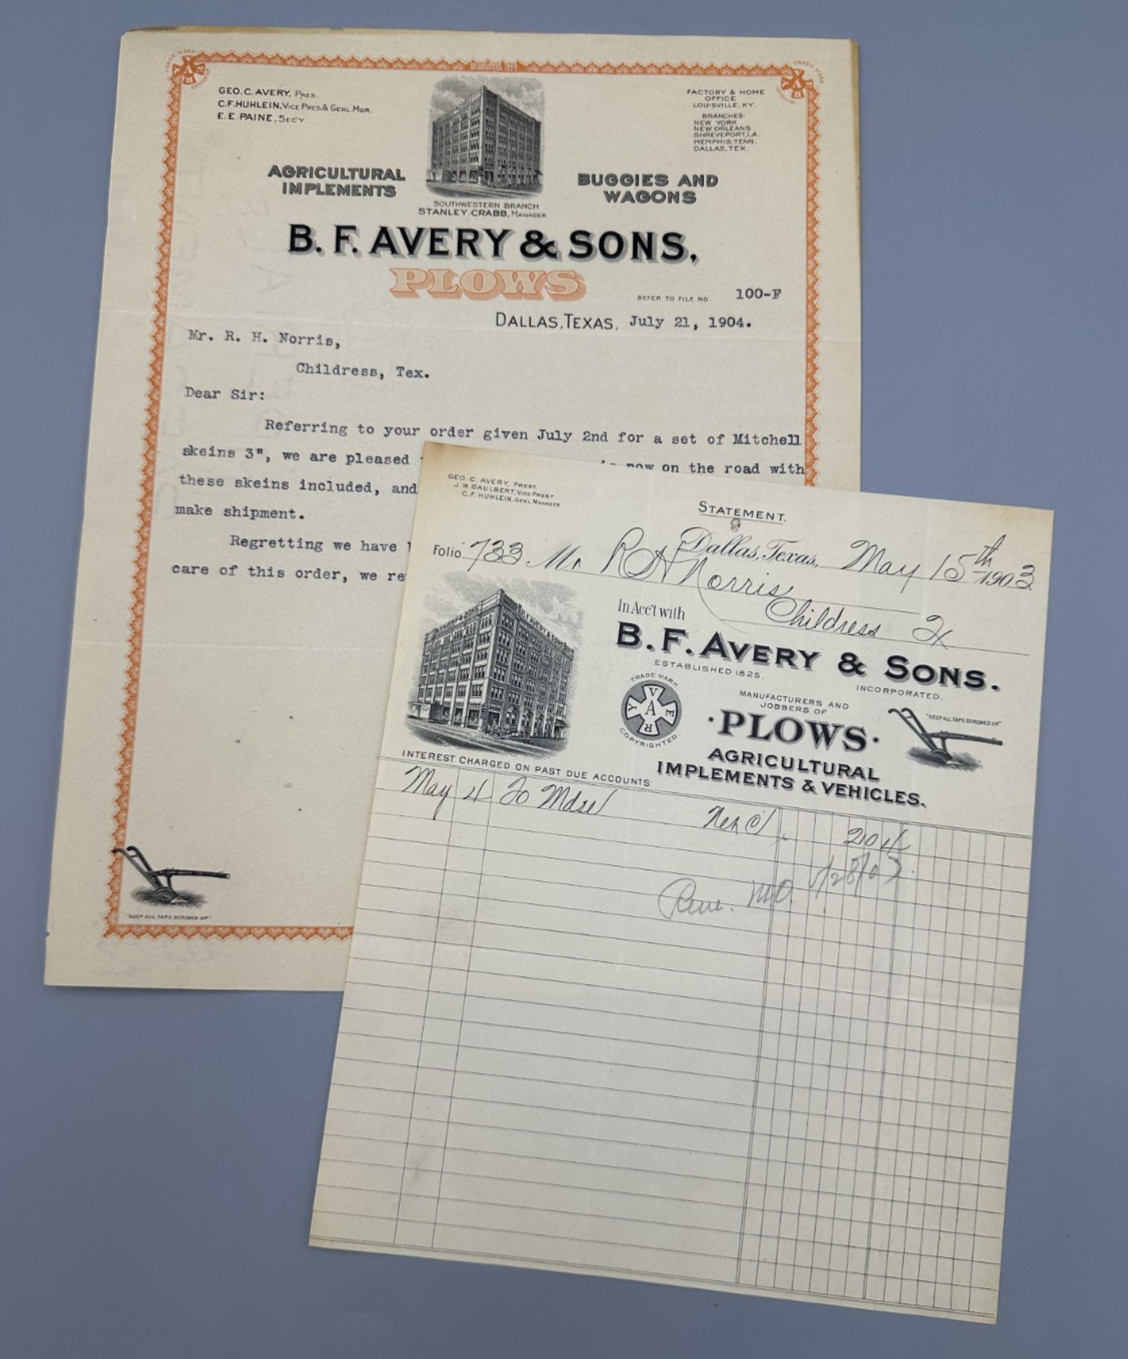 GEO. C. AVERY, PRES.
C. F. HUHLEIN, VICE PRES. & GENL. MGR.
E. E. PAINE, SEC'Y.
FACTORY & HOME
OFFICE
LOUISVILLE, KY.
BRANCHES:
NEW YORK
NEW ORLEANS
SHREVEPORT, LA.
MEMPHIS, TENN.
DALLAS, TEX.
AGRICULTURAL
IMPLEMENTS
BUGGIES AND
WAGONS
SOUTHWESTERN BRANCH
STANLEY CRABB, MANAGER
B. F. AVERY & SONS.
PLOWS
REFER TO FILE NO. 100-F
DALLAS, TEXAS, July 21, 1904.
Mr. R. H. Norris,
Childress, Tex.
Dear Sir:
Referring to your order given July 2nd for a set of Mitchell
skeins 3", we are pleased now on the road with
these skeins included, and
make shipment.
Regretting we have
care of this order, we re
"KEEP ALL TAPS SCREWED UP"
GEO. C. AVERY, PREST.
J. W. GAULBERT, VICE-PREST.
C. F. HUHLEIN, GENL. MANAGER
STATEMENT.
Dallas, Texas, May 15th 1903
Folio 733 Mr R H Norris
Childress Tx
In Acc't with
B. F. AVERY & SONS.
ESTABLISHED 1825.
INCORPORATED.
TRADE MARK
AVERY
COPYRIGHTED.
MANUFACTURERS AND
JOBBERS OF
·PLOWS·
AGRICULTURAL
IMPLEMENTS & VEHICLES.
"KEEP ALL TAPS SCREWED UP"
INTEREST CHARGED ON PAST DUE ACCOUNTS
May 4 To Mdse 204
M.O. 5/28/03.